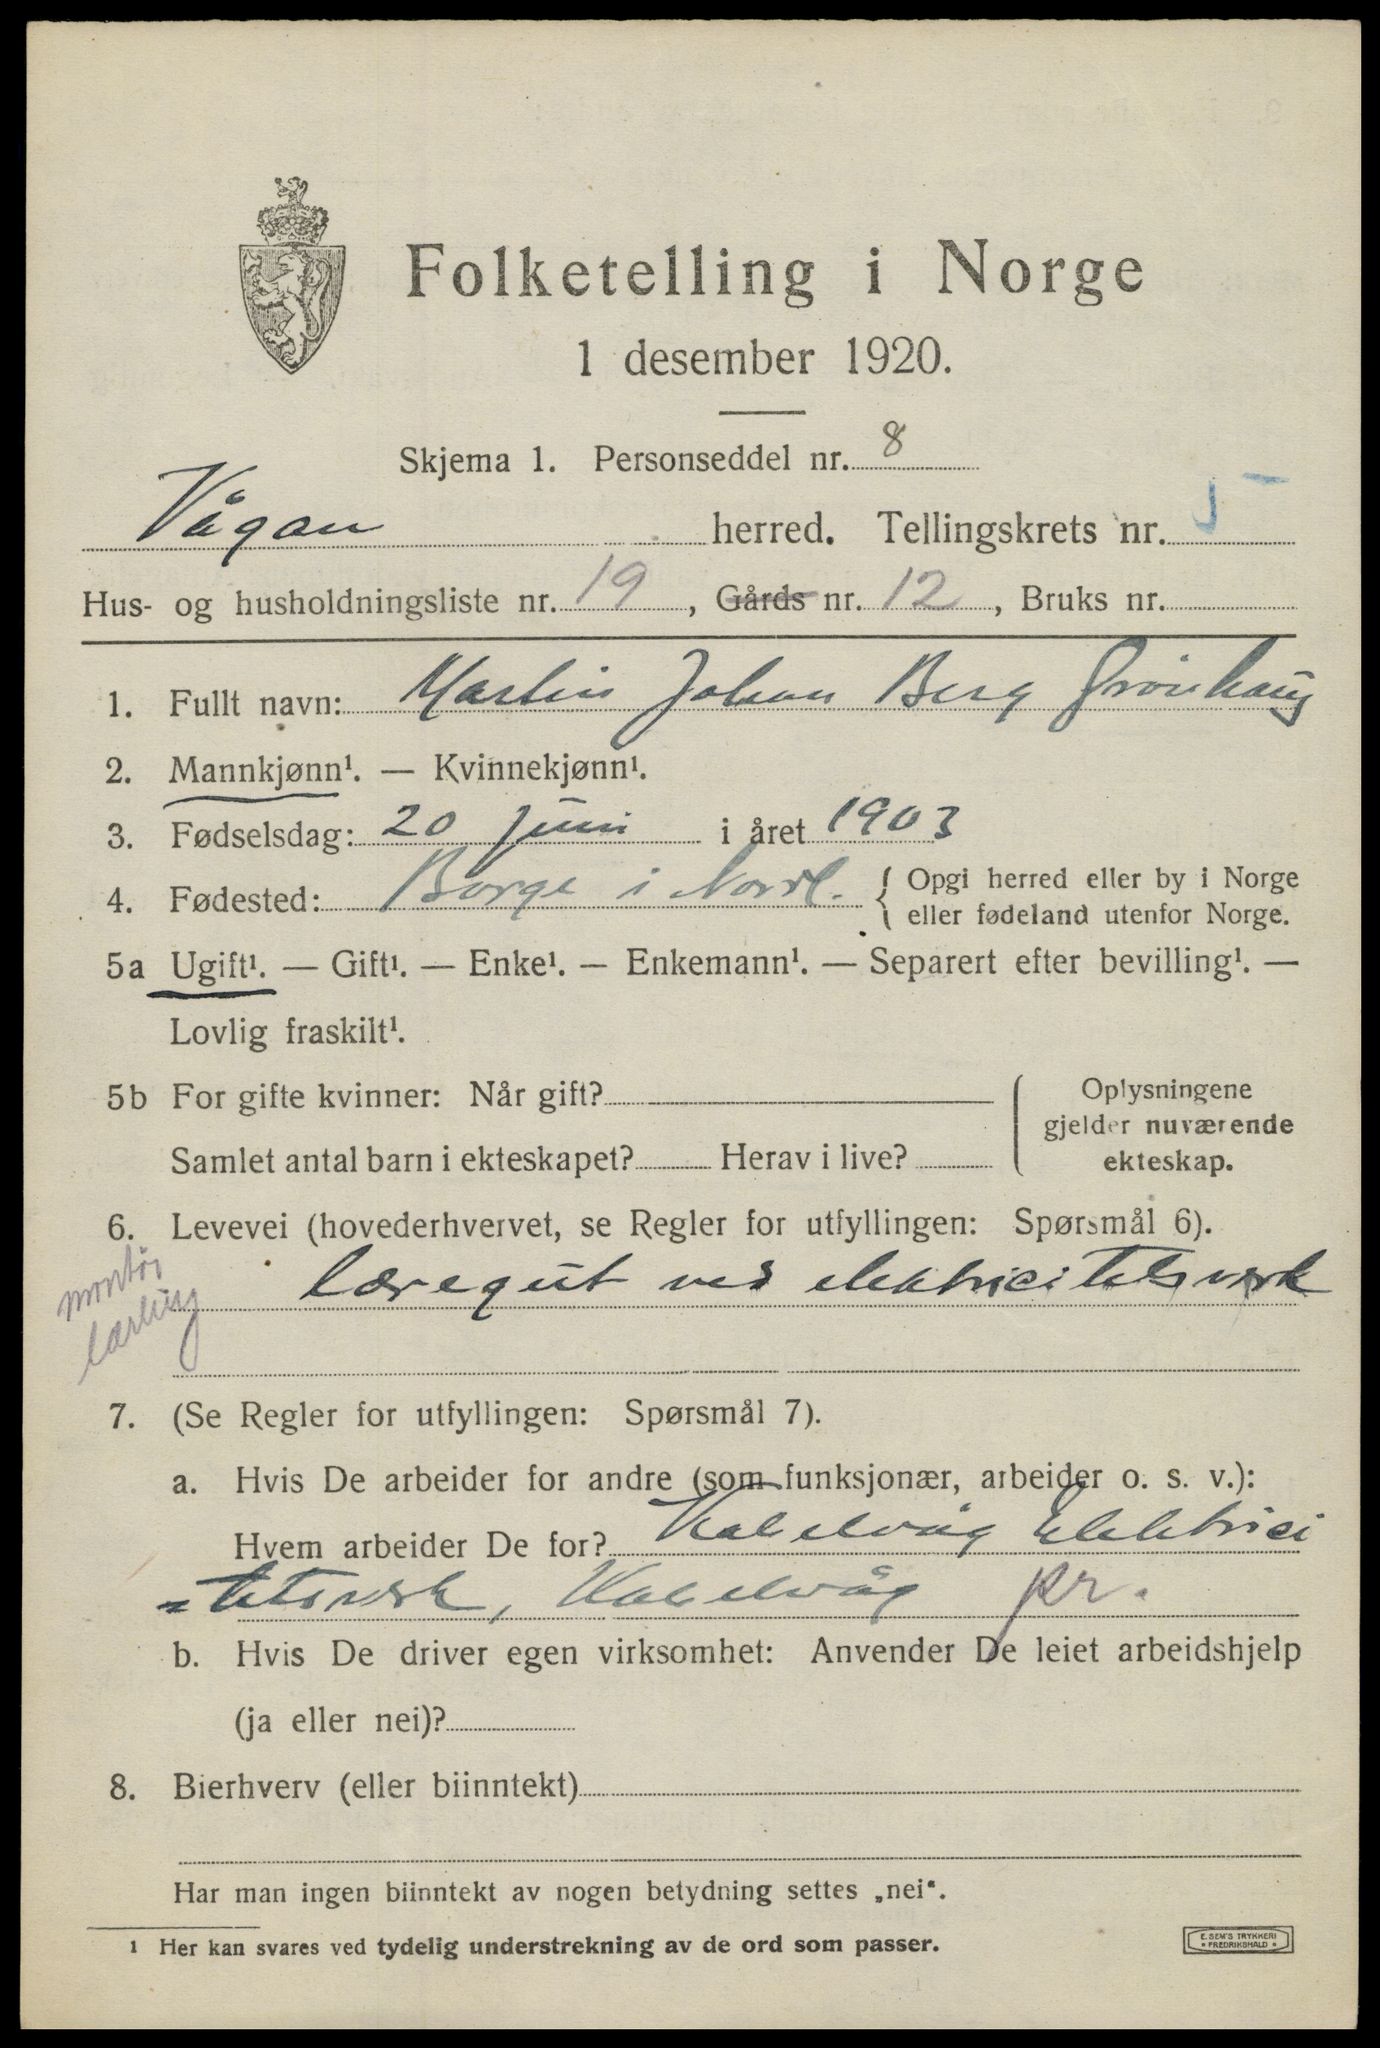 Folketelling i Norge
1 desember 1920.
Skjema 1. Personseddel nr. 8
Vågan herred. Tellingskrets nr. 5
Hus- og husholdningsliste nr. 19, Gårds nr. 12, Bruks nr.
1. Fullt navn: Martin Johan Berg Grönhaug
2. Mannkjønn¹. — Kvinnekjønn¹.
3. Fødselsdag: 20 Juni i året 1903
4. Fødested: Borge i Nordl. { Opgi herred eller by i Norge
eller fødeland utenfor Norge.
5a Ugift¹. — Gift¹. — Enke¹. — Enkemann¹. — Separert efter bevilling¹. —
Lovlig fraskilt¹.
5b For gifte kvinner: Når gift?
Samlet antal barn i ekteskapet? Herav i live?
Oplysningene
gjelder nuværende
ekteskap.
6. Levevei (hovederhvervet, se Regler for utfyllingen: Spørsmål 6).
montør
lærling
læregut ved elektricitetsverk
7. (Se Regler for utfyllingen: Spørsmål 7).
a. Hvis De arbeider for andre (som funksjonær, arbeider o. s. v.):
Hvem arbeider De for? Kabelvåg Elektrici
=tetsverk, Kabelvåg pr.
b. Hvis De driver egen virksomhet: Anvender De leiet arbeidshjelp
(ja eller nei)?
8. Bierhverv (eller biinntekt)
Har man ingen biinntekt av nogen betydning settes „nei“.
¹ Her kan svares ved tydelig understrekning av de ord som passer.
E. SEM'S TRYKKERI
• FREDRIKSHALD •